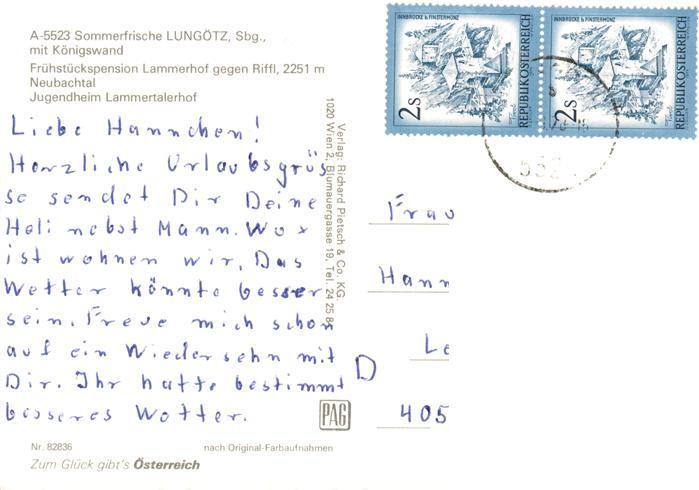 A-5523 Sommerfrische LUNGÖTZ, Sbg.,
mit Königswand
Frühstückspension Lammerhof gegen Riffl, 2251 m
Neubachtal
Jugendheim Lammertalerhof
Liebe Hannchen!
Herzliche Urlaubsgrüs
se sendet Dir Deine
Heli nebst Mann. Wo x
ist wohnen wir. Das
Wetter könnte besser
sein. Freue mich schon
auf ein Wiedersehn mit
Dir. Ihr hatte bestimmt
besseres Wetter.
Nr. 82836
nach Original-Farbaufnahmen
Zum Glück gibt's Österreich
Verlag: Richard Pietsch & Co. KG.
1020 Wien 2, Blumauergasse 19, Tel. 24 25 8
PAG
INNBRÜCKE b FINSTERMÜNZ
2S
REPUBLIK ÖSTERREICH
INNBRÜCKE b FINSTERMÜNZ
2S
REPUBLIK ÖSTERREICH
552
Frau
Hann
Le
D
405